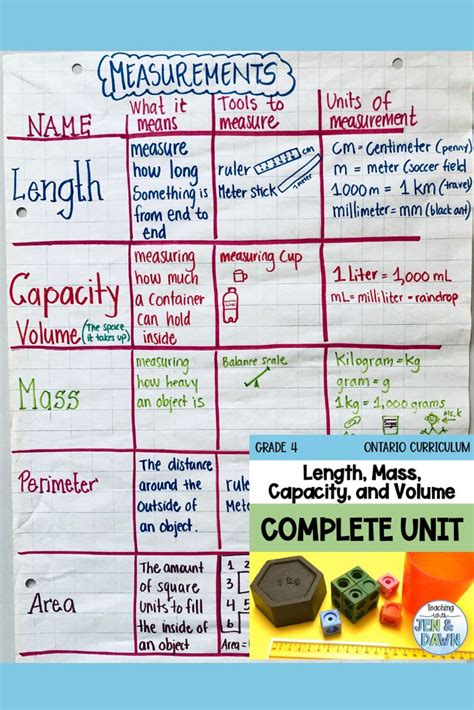 MEASUREMENTS
NAME
What it
means
Tools to
measure
Units of
measurement
Length
measure
how long
Something is
from end to
end
ruler
cm
Meter stick
1 meter
cm = Centimeter (penny)
m = meter (soccer field)
1000 m = 1 km (travel)
millimeter = mm (black ant)
Capacity
Volume (The space
it takes up)
measuring
how much
a container
can hold
inside
measuring Cup
1 Liter = 1,000 mL
mL = milliliter = raindrop
Mass
measuring
how heavy
an object is
Balance scale
Kilogram = kg
gram = g
1 kg = 1,000 grams
Perimeter
The distance
around the
outside of
an object.
rule
Mete
Area
The amount
of square
units to fill
the inside of
an object
1 2
3
4 5
6
Area =
GRADE 4
ONTARIO CURRICULUM
Length, Mass,
Capacity, and Volume
COMPLETE UNIT
1 kg
Teaching
with
JEN &
DAWN